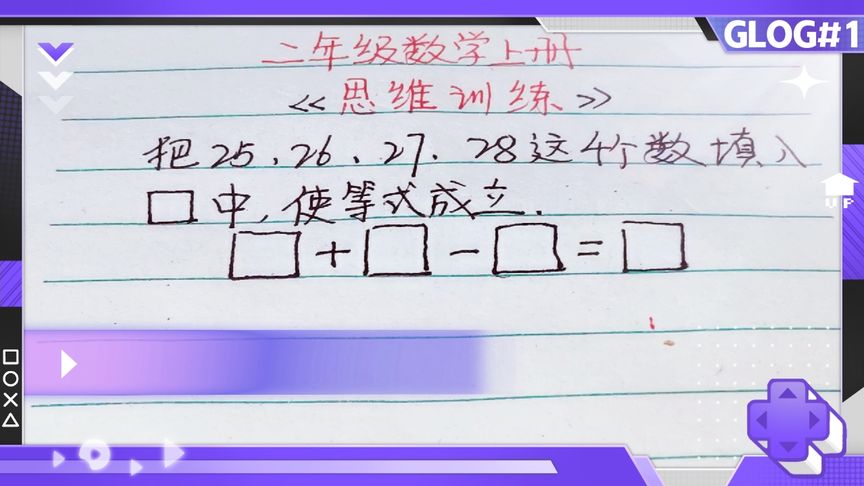 GLOG#1
二年级数学上册
<<思维训练>>
把25、26、27、28这4个数填入
□中,使等式成立.
□+□-□=□
UP